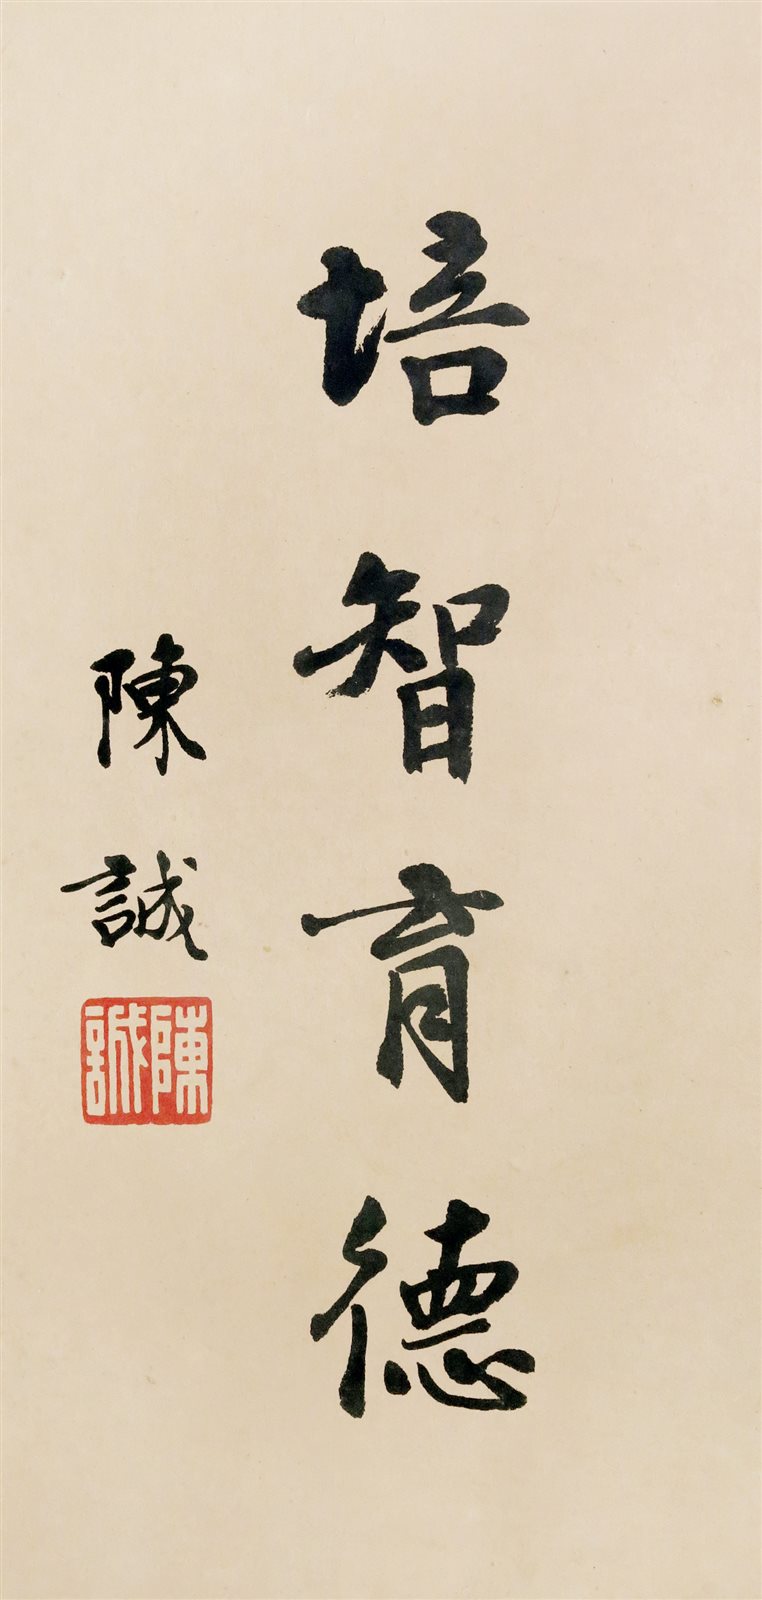 培智育德
陳誠
陳誠